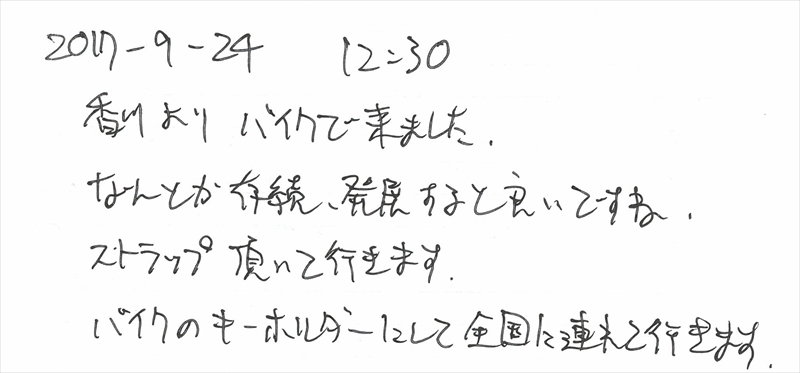 2017-9-24 12:30
香川より バイクで来ました.
なんとか存続、発展すると良いですね.
ストラップ頂いて行きます.
バイクのキーホルダーにして全国に連れて行きます.